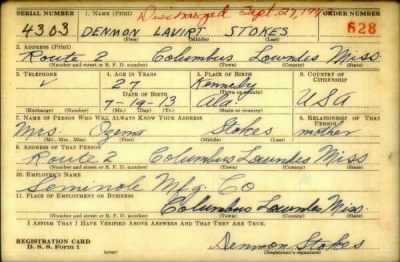 SERIAL NUMBER 1. NAME (Print) Discharged Sept. 27, ORDER NUMBER
4303 DENMON LAVIRT STOKES 628
(First) (Middle) (Last)
2. ADDRESS (Print)
Route 2 Columbus Lowndes Miss.
(Number and street or R. F. D. number) (Town) (County) (State)
3. TELEPHONE 4. AGE IN YEARS 5. PLACE OF BIRTH 6. COUNTRY OF CITIZENSHIP
27 Kennedy
DATE OF BIRTH (Town or county)
7-19-13 Ala. USA
(Exchange) (Number) (Mo.) (Day) (Yr.) (State or country)
7. NAME OF PERSON WHO WILL ALWAYS KNOW YOUR ADDRESS 8. RELATIONSHIP OF THAT PERSON
Mrs Ozema Stokes mother
(Mr., Mrs., Miss) (First) (Middle) (Last)
9. ADDRESS OF THAT PERSON
Route 2 Columbus Lowndes Miss
(Number and street or R. F. D. number) (Town) (County) (State)
10. EMPLOYER'S NAME
Seminole Mfg. Co
11. PLACE OF EMPLOYMENT OR BUSINESS
Columbus Lowndes Miss.
(Number and street or R. F. D. number) (Town) (County) (State)
I AFFIRM THAT I HAVE VERIFIED ABOVE ANSWERS AND THAT THEY ARE TRUE.
REGISTRATION CARD
D. S. S. Form 1 Denmon Stokes
(Registrant's signature)